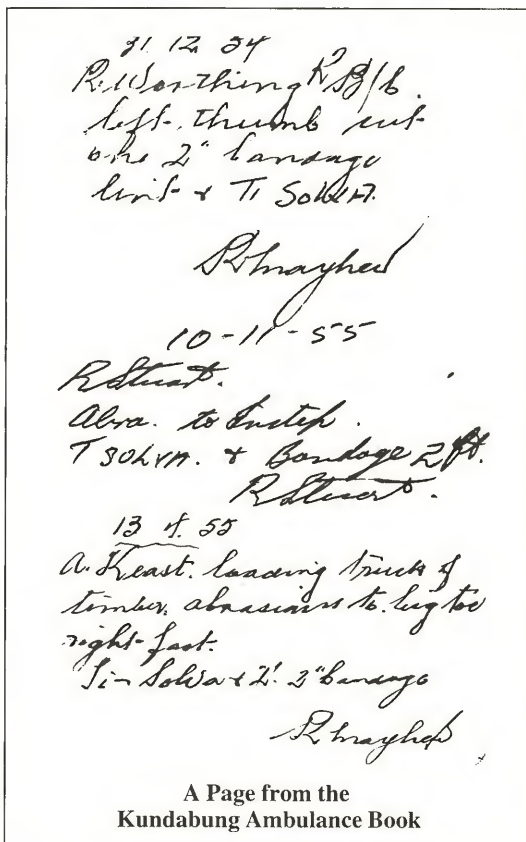 31. 12. 54
R. Worthing
left thumb cut
one 2" bandage
lint & Ti Solva.
R Mayhew
10-11-55
R Stuart.
Abra. to Instep.
T SOLVA. & Bandage 2 ft.
R Stuart.
13 4. 55
A. Keast. loading truck of
timber, abrasians to big toe
right foot.
Ti-Solva & 2' 2" bandage
R Mayhew
A Page from the
Kundabung Ambulance Book